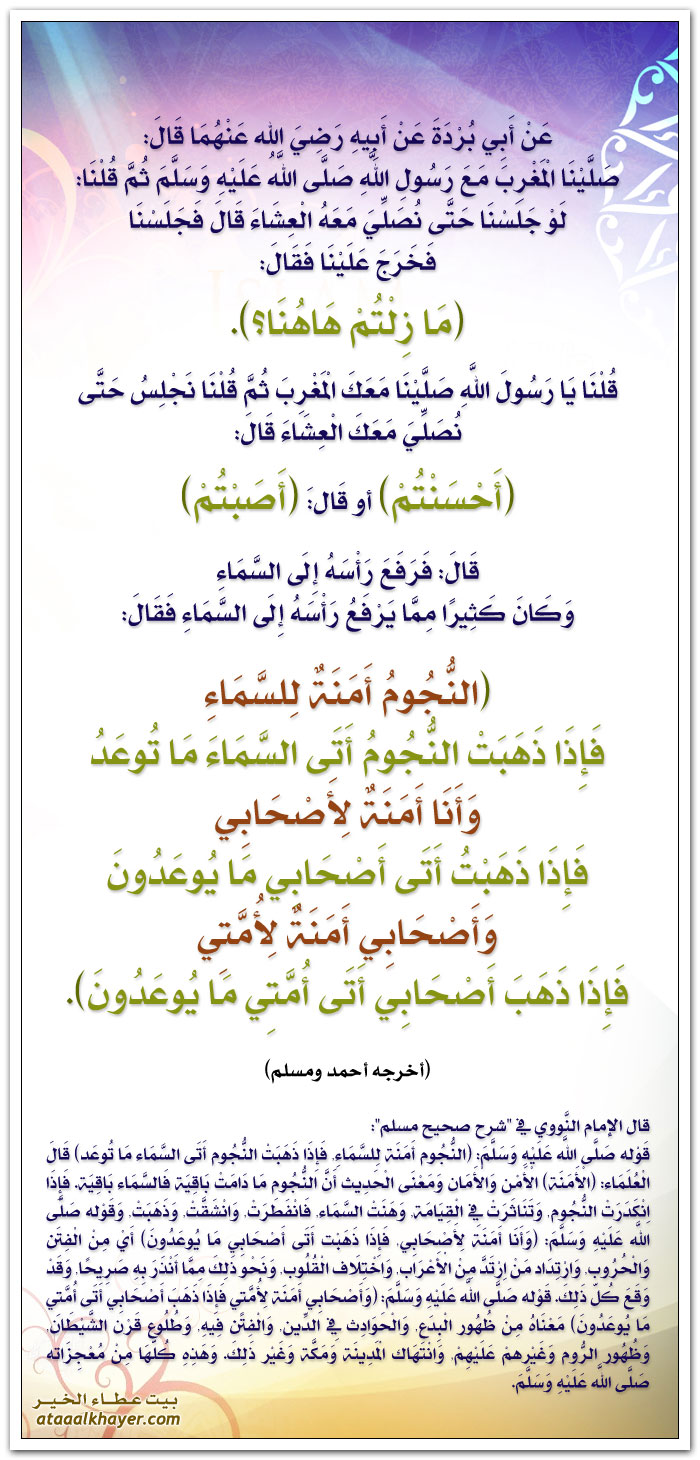 عَنْ أَبِي بُرْدَةَ عَنْ أَبِيهِ رَضِيَ الله عَنْهُمَا قَالَ:
صَلَّيْنَا الْمَغْرِبَ مَعَ رَسُولِ اللَّهِ صَلَّى اللَّهُ عَلَيْهِ وَسَلَّمَ ثُمَّ قُلْنَا:
لَوْ جَلَسْنَا حَتَّى نُصَلِّيَ مَعَهُ الْعِشَاءَ قَالَ فَجَلَسْنَا
فَخَرَجَ عَلَيْنَا فَقَالَ:
(مَا زِلْتُمْ هَاهُنَا؟).
قُلْنَا يَا رَسُولَ اللَّهِ صَلَّيْنَا مَعَكَ الْمَغْرِبَ ثُمَّ قُلْنَا نَجْلِسُ حَتَّى
نُصَلِّيَ مَعَكَ الْعِشَاءَ قَالَ:
(أَحْسَنْتُمْ) أو قَالَ: (أَصَبْتُمْ)
قَالَ: فَرَفَعَ رَأْسَهُ إِلَى السَّمَاءِ
وَكَانَ كَثِيرًا مِمَّا يَرْفَعُ رَأْسَهُ إِلَى السَّمَاءِ فَقَالَ:
(النُّجُومُ أَمَنَةٌ لِلسَّمَاءِ
فَإِذَا ذَهَبَتْ النُّجُومُ أَتَى السَّمَاءَ مَا تُوعَدُ
وَأَنَا أَمَنَةٌ لِأَصْحَابِي
فَإِذَا ذَهَبْتُ أَتَى أَصْحَابِي مَا يُوعَدُونَ
وَأَصْحَابِي أَمَنَةٌ لِأُمَّتِي
فَإِذَا ذَهَبَ أَصْحَابِي أَتَى أُمَّتِي مَا يُوعَدُونَ).
(أخرجه أحمد ومسلم)
قال الإمام النَّووي في "شرح صحيح مسلم":
قَوْله صَلَّى اللَّه عَلَيْهِ وَسَلَّمَ: (النُّجُوم أَمَنَة لِلسَّمَاءِ، فَإِذَا ذَهَبَتْ النُّجُوم أَتَى السَّمَاء مَا تُوعَد) قَالَ
الْعُلَمَاء: (الأَمَنَة) الأَمْن وَالأَمَان وَمَعْنَى الْحَدِيث أَنَّ النُّجُوم مَا دَامَتْ بَاقِيَة فَالسَّمَاء بَاقِيَة. فَإِذَا
اِنْكَدَرَتْ النُّجُوم، وَتَنَاثَرَتْ فِي القِيَامَة، وَهَنَتْ السَّمَاء، فَانْفَطَرَتْ، وَانْشَقَّتْ، وَذَهَبَتْ، وَقَوْله صَلَّى
اللَّه عَلَيْهِ وَسَلَّمَ: (وَأَنا أمَنَة لأَصْحَابي، فإذا ذهَبْت أتَى أصْحَابي مَا يُوعَدُونَ) أَيْ مِنْ الْفِتَن
وَالْحُرُوب، وَارْتِدَاد مَنْ اِرْتَدَّ مِنْ الأَعْرَاب، وَاخْتِلَاف الْقُلُوب، وَنَحْو ذَلِكَ مِمَّا أَنْذَرَ بِهِ صَرِيحًا، وَقَدْ
وَقَعَ كُل ذَلِكَ. قَوْله صَلَّى اللَّه عَلَيْهِ وَسَلَّمَ: (وَأصْحَابي أمَنَة لأمَّتي فإذَا ذهَبَ أصْحَابي أتى أمَّتي
مَا يُوعَدُونَ) مَعْنَاهُ مِنْ ظُهُور الْبِدَع، وَالْحَوَادِث فِي الدِّين، وَالْفِتَن فِيهِ، وَطُلُوع قَرْن الشَّيْطَان،
وَظُهُور الرُّوم وَغَيْرهمْ عَلَيْهِمْ، وَانْتهَاك الْمَدِينَة وَمَكَّة وَغَيْر ذَلِكَ. وَهَذِهِ كُلّهَا مِنْ مُعْجِزَاته
صَلَّى اللَّه عَلَيْهِ وَسَلَّمَ.
بيت عطاء الخير
ataaalkhayer.com